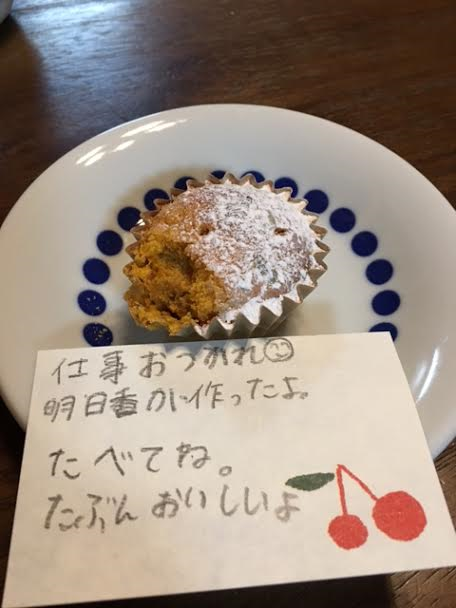 仕事おつかれ
明日香が作ったよ。
たべてね。
たぶんおいしいよ